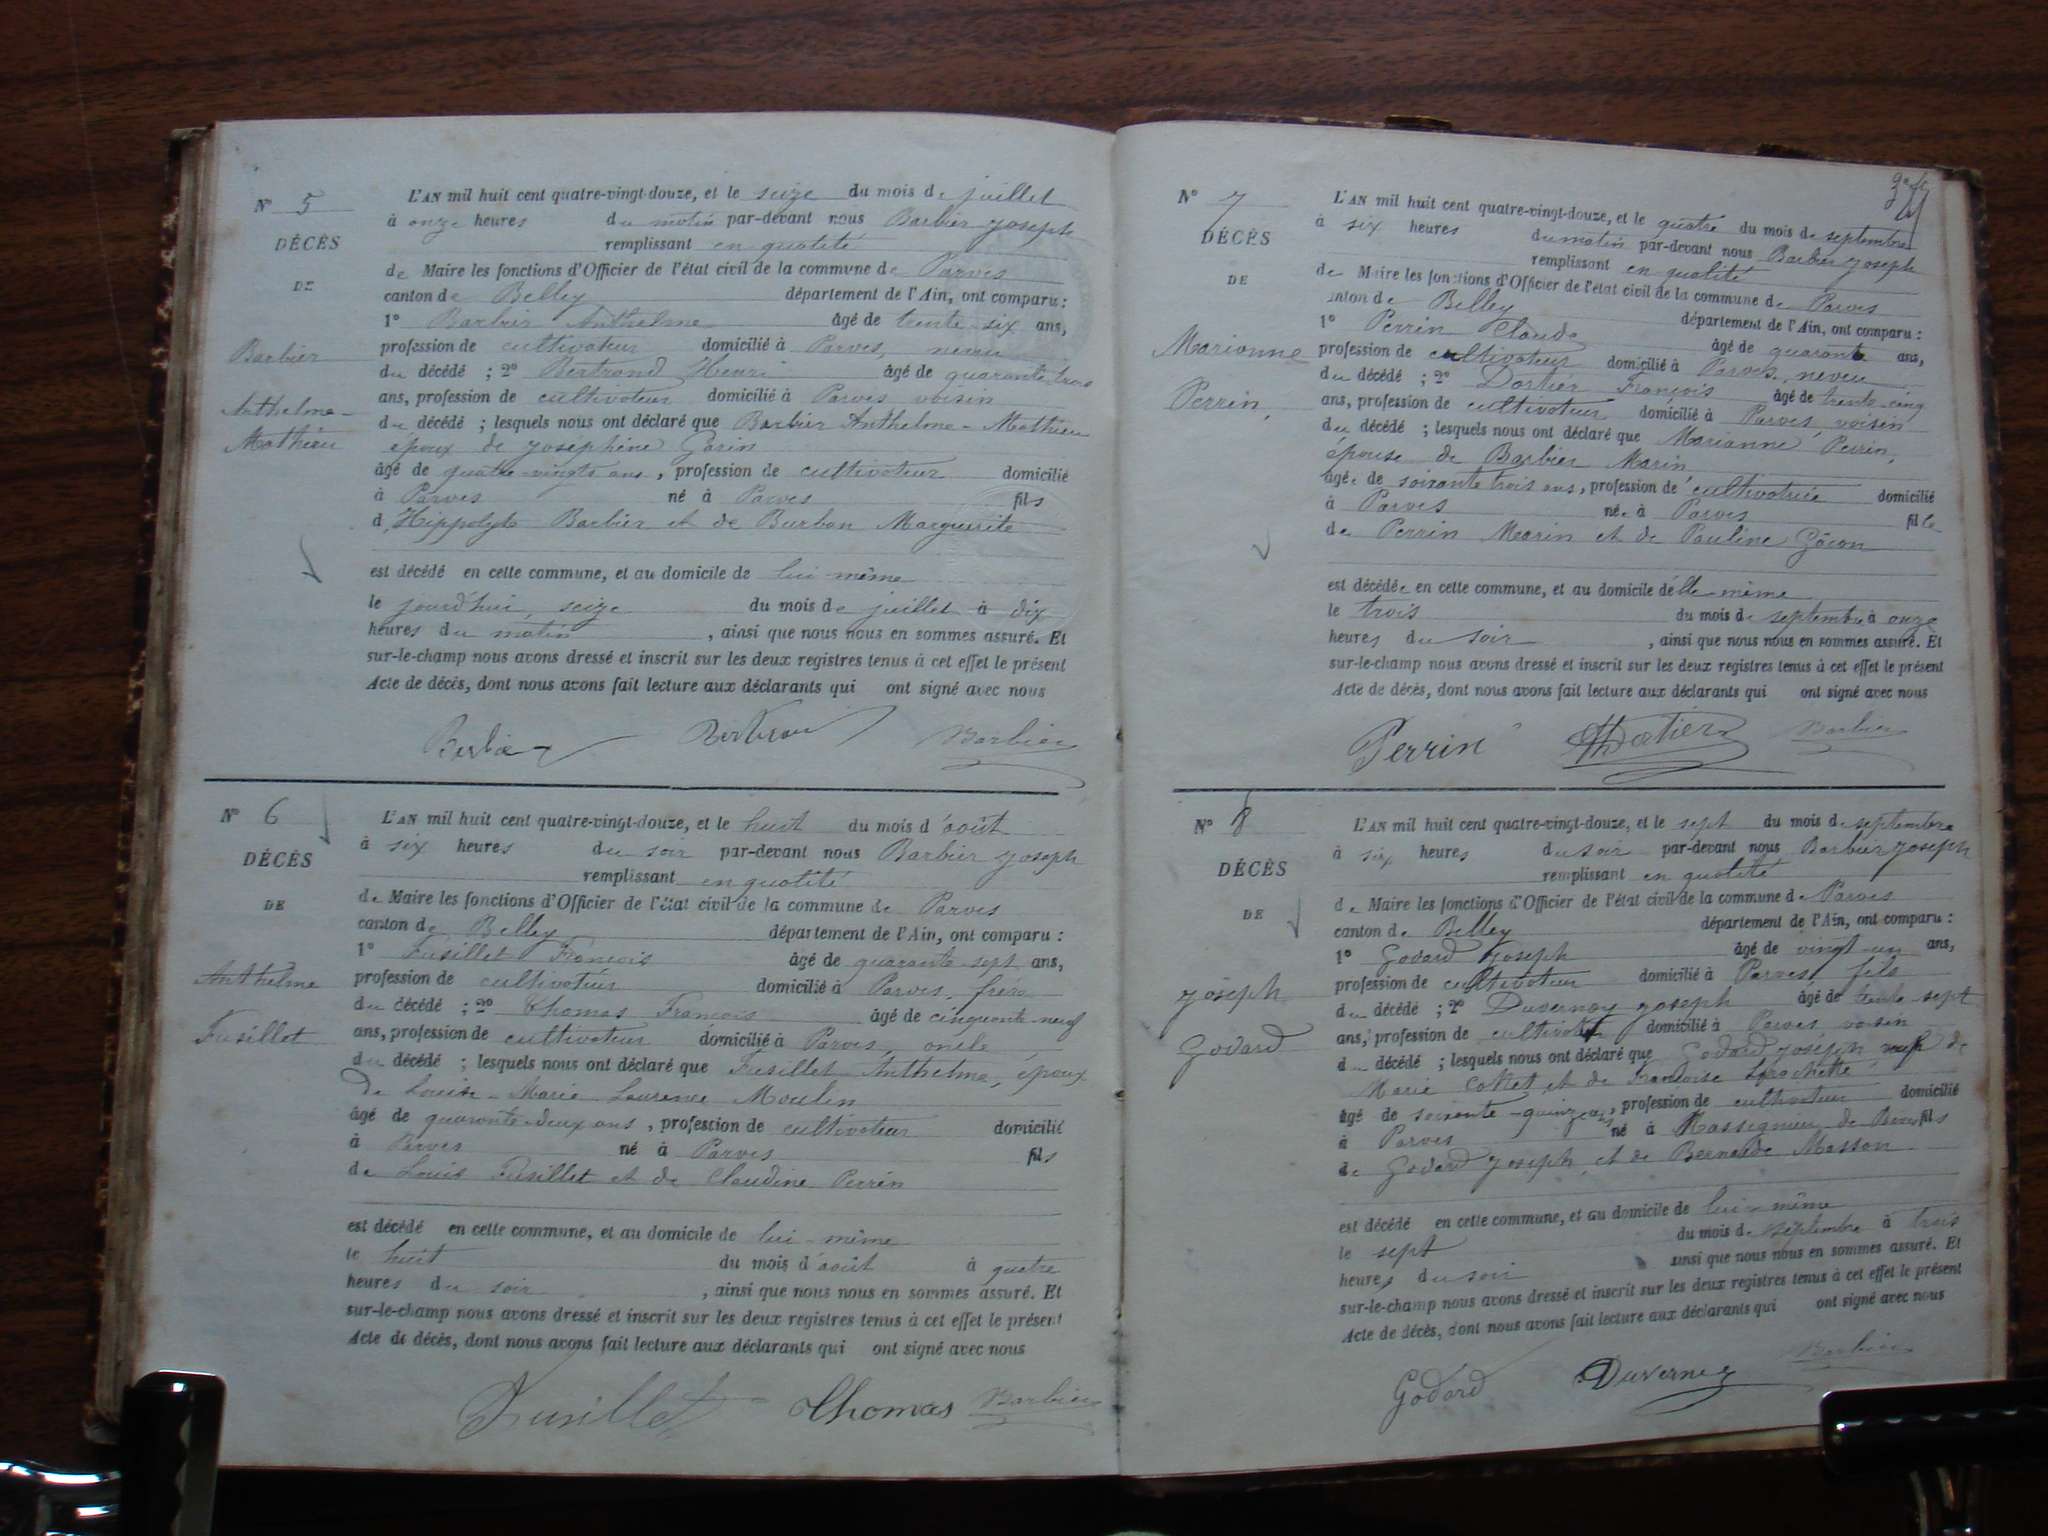 N° 5
DÉCÈS
DE
Barbier
Anthelme-
Mathieu
L'AN mil huit cent quatre-vingt-douze, et le seize du mois de juillet
à onze heures du matin par-devant nous Barbier Joseph
remplissant en qualité
de Maire les fonctions d'Officier de l'état civil de la commune de Parves
canton de Belley département de l'Ain, ont comparu :
1° Barbier Anthelme âgé de trente-six ans,
profession de cultivateur domicilié à Parves, neveu
du décédé ; 2° Bertrand Henri âgé de quarante trois
ans, profession de cultivateur domicilié à Parves voisin
du décédé ; lesquels nous ont déclaré que Barbier Anthelme-Mathieu
époux de Joséphine Garin
âgé de quatre-vingts ans, profession de cultivateur domicilié
à Parves né à Parves fils
d'Hippolyte Barbier et de Burbon Marguerite
est décédé en cette commune, et au domicile de lui-même
le jourd'hui, seize du mois de juillet à dix
heures du matin, ainsi que nous nous en sommes assuré. Et
sur-le-champ nous avons dressé et inscrit sur les deux registres tenus à cet effet le présent
Acte de décès, dont nous avons fait lecture aux déclarants qui ont signé avec nous
Barbier Bertrand Barbier
N° 6
DÉCÈS
DE
Anthelme
Fusillet
L'AN mil huit cent quatre-vingt-douze, et le huit du mois d'août
à six heures du soir par-devant nous Barbier Joseph
remplissant en qualité
de Maire les fonctions d'Officier de l'état civil de la commune de Parves
canton de Belley département de l'Ain, ont comparu :
1° Fusillet François âgé de quarante sept ans,
profession de cultivateur domicilié à Parves, frère
du décédé ; 2° Thomas François âgé de cinquante-neuf
ans, profession de cultivateur domicilié à Parves, oncle
du décédé ; lesquels nous ont déclaré que Fusillet Anthelme, époux
de Louise-Marie Laurence Moulin
âgé de quarante-deux ans, profession de cultivateur domicilié
à Parves né à Parves fils
de Louis Fusillet et de Claudine Perrin
est décédé en cette commune, et au domicile de lui-même
le huit du mois d'août à quatre
heures du soir, ainsi que nous nous en sommes assuré. Et
sur-le-champ nous avons dressé et inscrit sur les deux registres tenus à cet effet le présent
Acte de décès, dont nous avons fait lecture aux déclarants qui ont signé avec nous
Fusillet Thomas Barbier
N° 7
DÉCÈS
DE
Marianne
Perrin,
L'AN mil huit cent quatre-vingt-douze, et le quatre du mois de septembre
à six heures du matin par-devant nous Barbier Joseph
remplissant en qualité
de Maire les fonctions d'Officier de l'état civil de la commune de Parves
canton de Belley département de l'Ain, ont comparu :
1° Perrin Claude âgé de quarante ans,
profession de cultivateur domicilié à Parves, neveu
du décédé ; 2° Dortier François âgé de trente-cinq
ans, profession de cultivateur domicilié à Parves voisin
du décédé ; lesquels nous ont déclaré que Marianne Perrin,
épouse de Barbier Marin
âgée de soixante trois ans, profession de cultivatrice domicilié
à Parves née à Parves fille
de Perrin Marin et de Pauline Gâcon
est décédée en cette commune, et au domicile d'elle même
le trois du mois de septembre à onze
heures du soir, ainsi que nous nous en sommes assuré. Et
sur-le-champ nous avons dressé et inscrit sur les deux registres tenus à cet effet le présent
Acte de décès, dont nous avons fait lecture aux déclarants qui ont signé avec nous
Perrin Dortier Barbier
N° 8
DÉCÈS
DE
Joseph
Godard
L'AN mil huit cent quatre-vingt-douze, et le sept du mois de septembre
à six heures du soir par-devant nous Barbier Joseph
remplissant en qualité
de Maire les fonctions d'Officier de l'état civil de la commune de Parves
canton de Belley département de l'Ain, ont comparu :
1° Godard Joseph âgé de vingt-un ans,
profession de cultivateur domicilié à Parves, fils
du décédé ; 2° Duvernay Joseph âgé de trente sept
ans, profession de cultivateur domicilié à Parves, voisin
d décédé ; lesquels nous ont déclaré que Godard Joseph, veuf de
Marie Collet, et de Françoise
âgé de soixante-quinze ans, profession de cultivateur domicilié
à Parves né à fils
de Godard Joseph, et de Bernarde Masson
est décédé en cette commune, et au domicile de lui-même
le sept du mois de septembre à trois
heures du soir ainsi que nous nous en sommes assuré. Et
sur-le-champ nous avons dressé et inscrit sur les deux registres tenus à cet effet le présent
Acte de décès, dont nous avons fait lecture aux déclarants qui ont signé avec nous
Godard Duverney Barbier